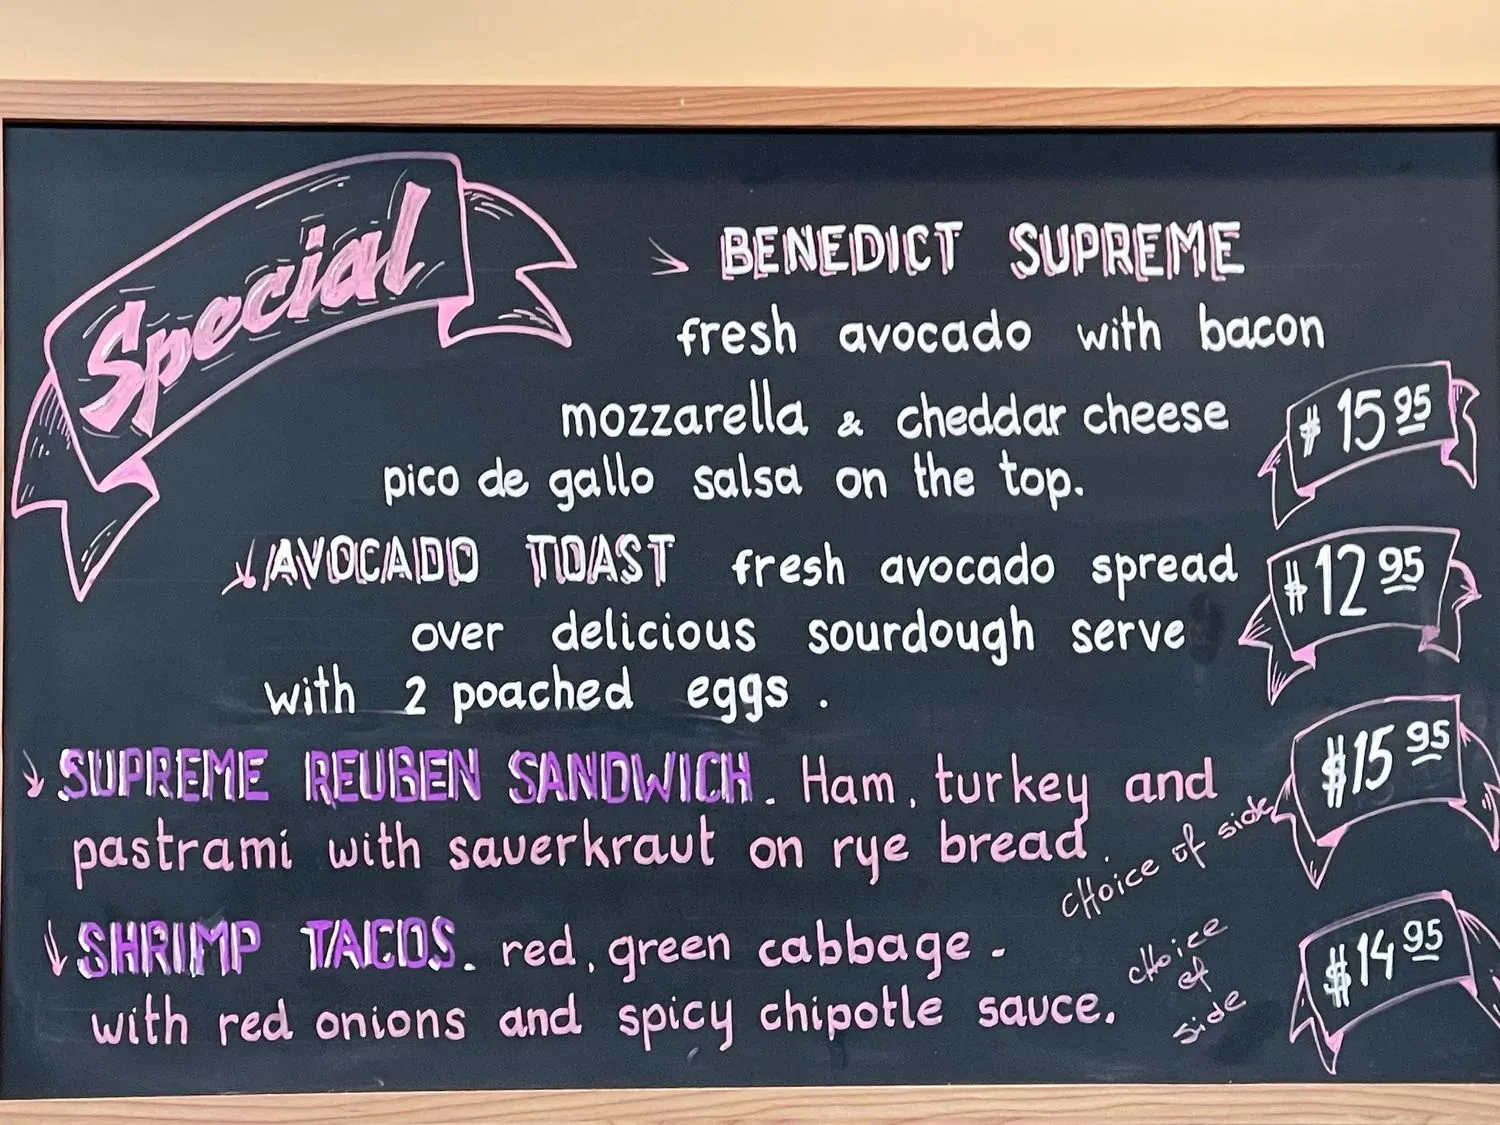 Special
BENEDICT SUPREME
fresh avocado with bacon
mozzarella & cheddar cheese
$15 95
pico de gallo salsa on the top.
AVOCADO TOAST fresh avocado spread
$12 95
over delicious sourdough serve
with 2 poached eggs .
SUPREME REUBEN SANDWICH. Ham, turkey and
$15 95
pastrami with sauerkraut on rye bread.
cHoice of side
SHRIMP TACOS. red, green cabbage -
cHoice
of
side
$14 95
with red onions and spicy chipotle sauce.